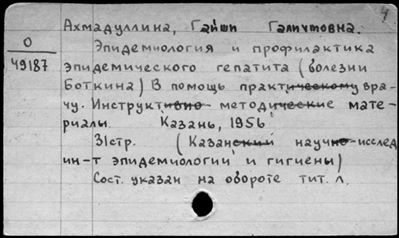 4
Ахмадуллина, Гайши Галиутовна.
О
49187
Эпидемиология и профилактика
эпидемического гепатита (болезни
Боткина) В помощь практическому вра-
чу. Инструктивно методические мате-
риалы. Казань, 1956
31стр. (Казанский научно-исслед
ин-т эпидемиологии и гигиены)
Сост. указан на обороте тит. л.